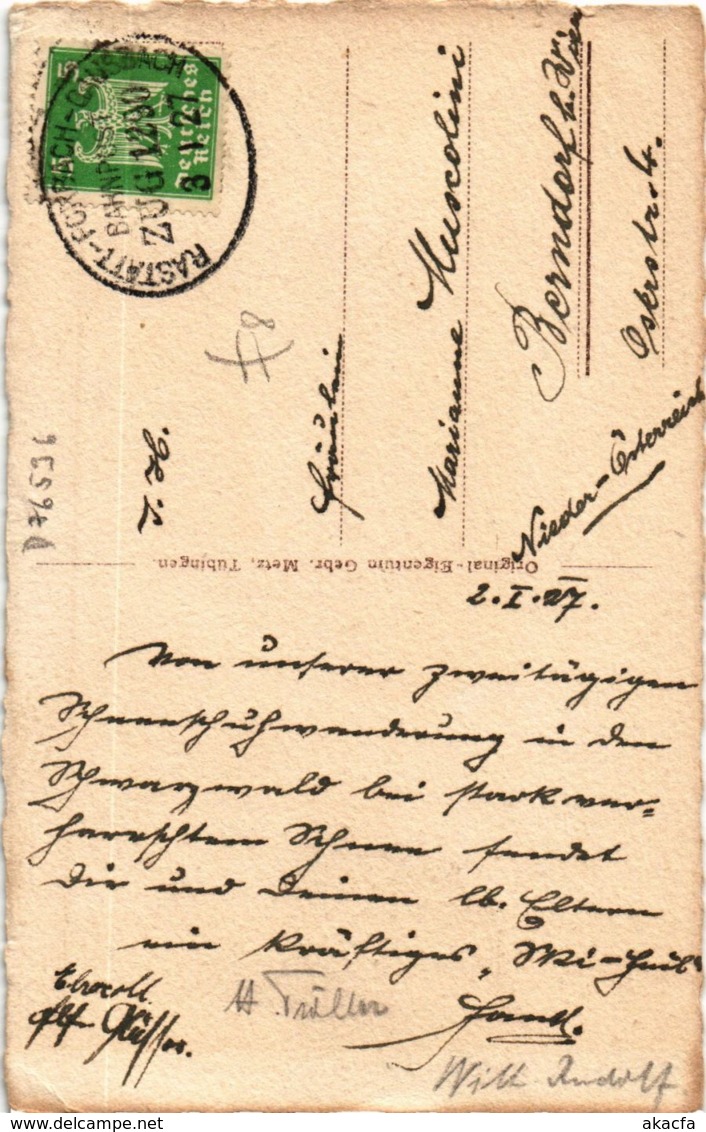 5
Deutsches
Reich
RASTATT-FORBACH-GAUSBACH
BAHNPOST
ZUG 1290
3 1 27
Fräulein
Marianne Muscolini
Berndorf b. Wien
Nieder-Österreich
Original-Eigentum Gebr. Metz, Tübingen.
2.I.27.
Von unserer zweitägigen
Schneeschuhwanderung in den
Schwarzwald bei stark ver=
harrschtem Schnee sendet
Dir und Deinen lb. Eltern
ein kräftiges „Ski-Heil"
akacfa